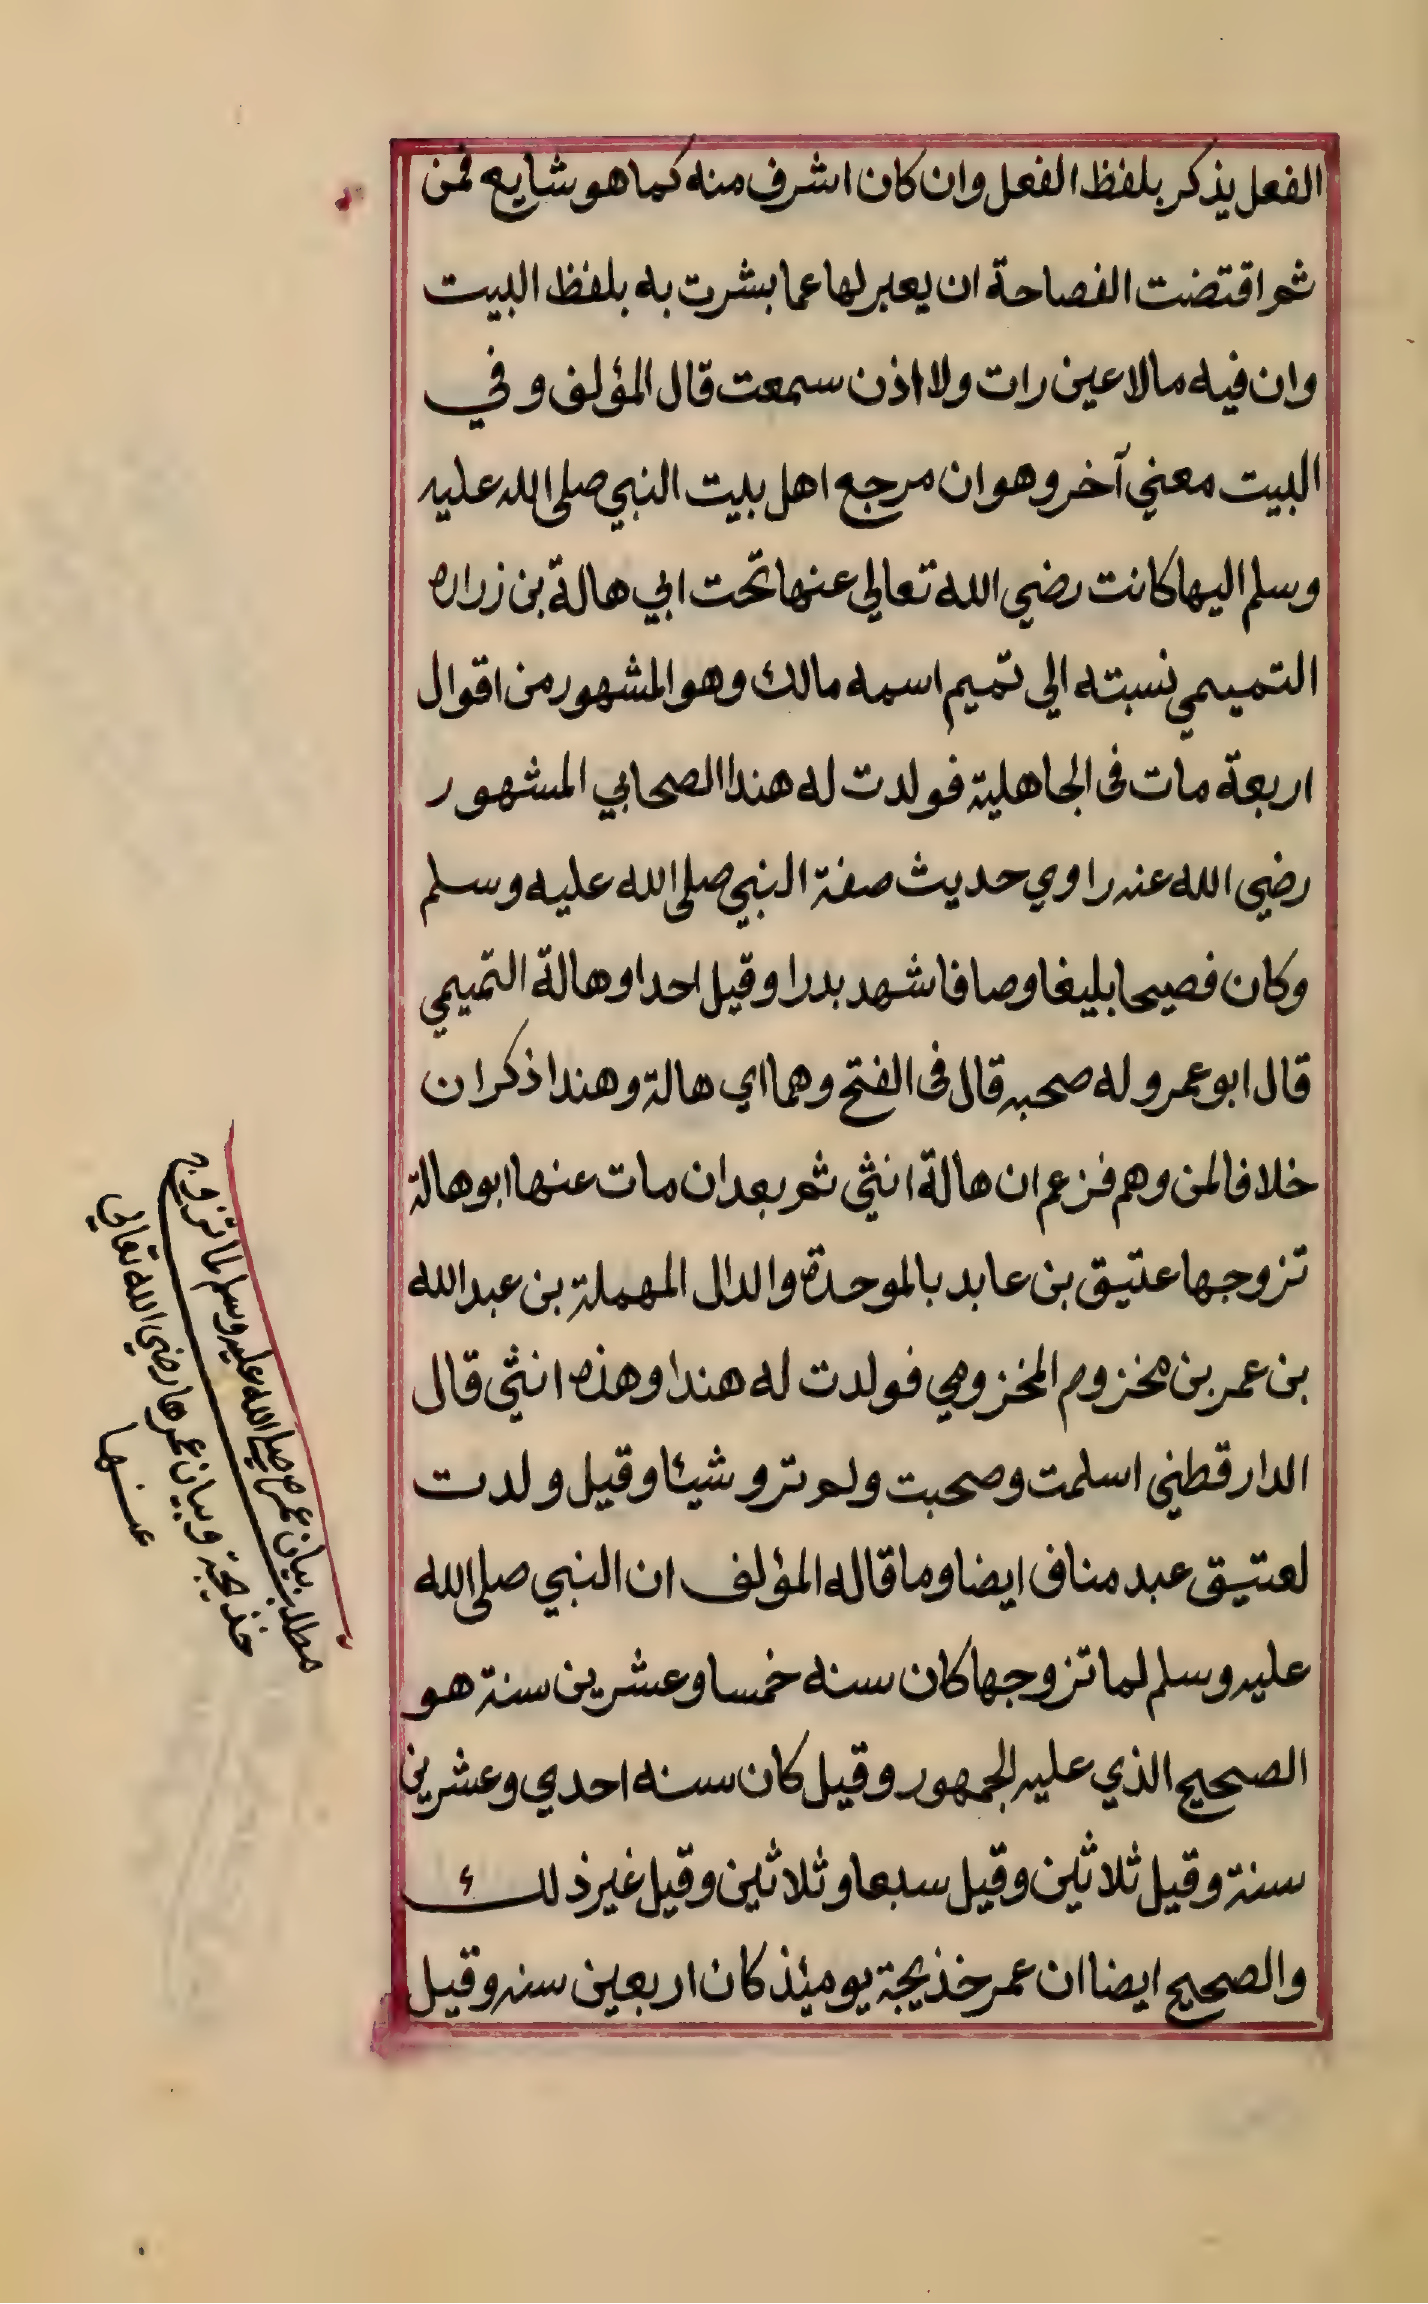 الفعل يذكر بلفظ الفعل وان كان اشرف منه كما هو شايع فمن
ثم اقتضت الفصاحة ان يعبر لها عما بشرت به بلفظ البيت
وان فيه مالا عين رات ولا اذن سمعت قال المؤلف وفي
البيت معني آخر وهو ان مرجع اهل بيت النبي صلى الله عليه
وسلم اليها كانت رضي الله تعالي عنها تحت ابي هالة بن زراره
التميمي نسبته الي تميم اسمه مالك وهو المشهور من اقوال
اربعة مات في الجاهلية فولدت له هندا الصحابي المشهور
رضي الله عنه راوي حديث صفة النبي صلى الله عليه وسلم
وكان فصيحا بليغا وصافا شهد بدرا وقيل احدا وهالة التميمي
قال ابو عمر وله صحبة قال في الفتح وهما اي هالة وهندا ذكران
خلافا لمن وهم فزعم ان هالة انثي ثم بعد ان مات عنها ابو هالة
تزوجها عتيق بن عابد بالموحدة والدال المهملة بن عبد الله
بن عمر بن مخزوم المخزومي فولدت له هندا وهذه انثي قال
الدار قطني اسلمت وصحبت ولم ترو شيئا وقيل ولدت
لعتيق عبد مناف ايضا وما قاله المؤلف ان النبي صلى الله
عليه وسلم لما تزوجها كان سنه خمسا وعشرين سنة هو
الصحيح الذي عليه الجمهور وقيل كان سنه احدي وعشرين
سنة وقيل ثلاثين وقيل سبعا وثلاثين وقيل غير ذلك
والصحيح ايضا ان عمر خذيجة يومئذ كان اربعين سنه وقيل
مطلب بيان عمره صلى الله عليه وسلم لما تزوج
خذيجة وبيان عمرها رضي الله تعالي
عنها